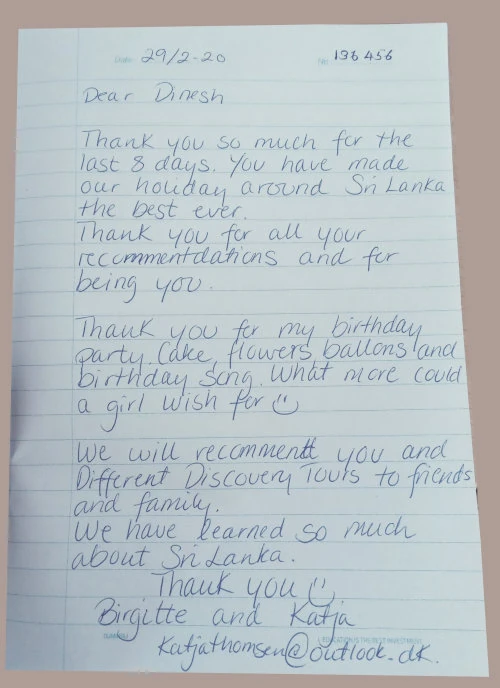 29/2-20 136456
Dear Dinesh
Thank you so much for the
last 8 days. You have made
our holiday around Sri Lanka
the best ever.
Thank you for all your
recommentdations and for
being you.
Thank you for my birthday
party. Cake, flowers ballons and
birthday song. What more could
a girl wish for
We will recommentt you and
Different Discovery Tours to friends
and family.
We have learned so much
about Sri Lanka.
Thank you
Birgitte and Katja
EDUCATION IS THE BEST INVESTMENT
Katjathomsen@outlook.dk.